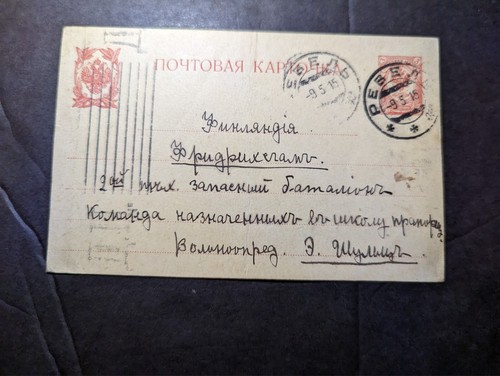 ПОЧТОВАЯ КАРТОЧКА
РЕВЕЛЬ
-9.5.15
РЕВЕЛЬ
-9.5.15
Финляндія.
Фридрихсгамъ.
2ой пѣх. запасный баталіонъ
Команда назначенныхъ въ школу прапорщ.
Вольноопред. Э. Шульцъ.